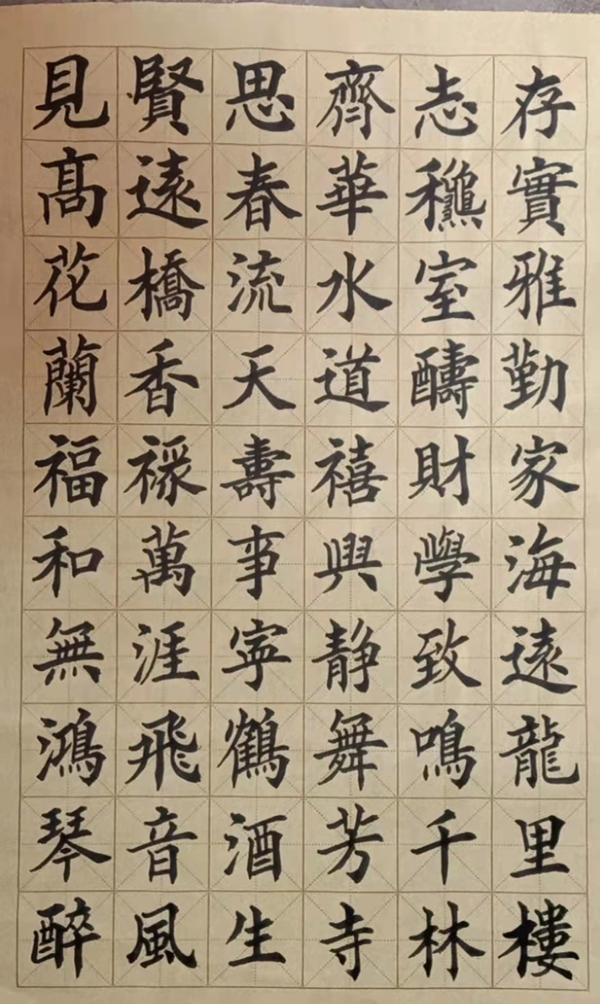 見賢思齊志存
髙遠春華龝實
花橋流水室雅
蘭香天道醻勤
福祿壽禧財家
和萬事興學海
無涯寧静致遠
鴻飛鶴舞鳴龍
琴音酒芳千里
醉風生寺林樓